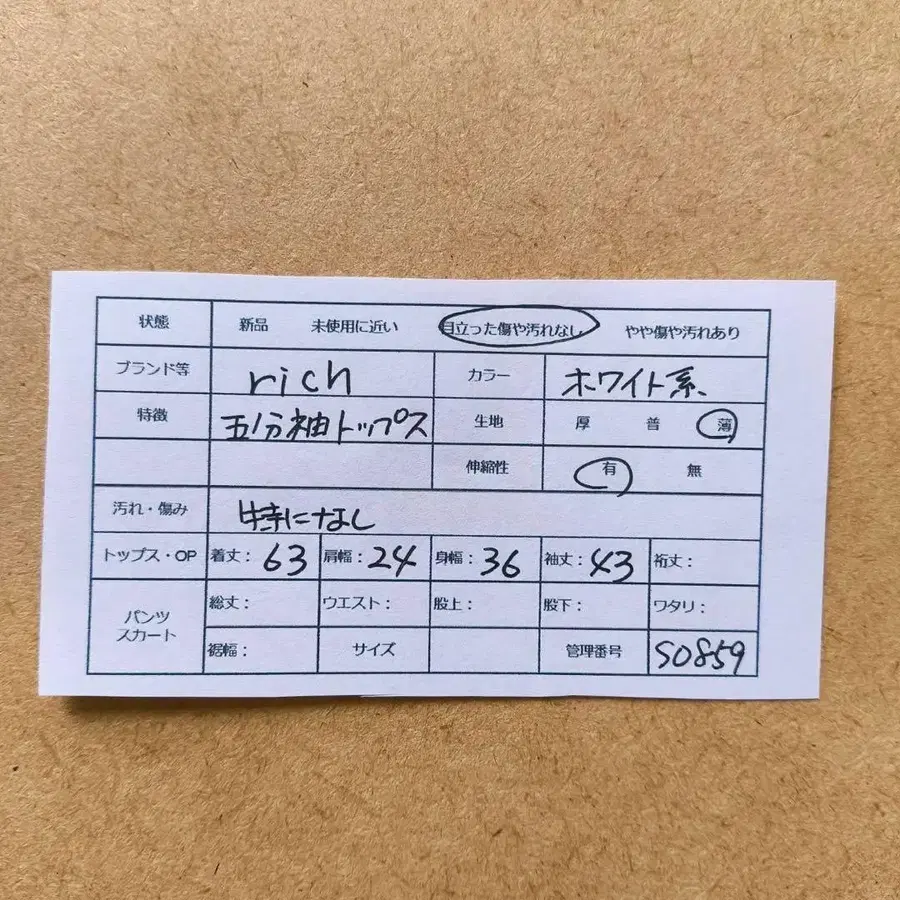 状態 新品 未使用に近い 目立った傷や汚れなし やや傷や汚れあり
ブランド等 rich カラー ホワイト系
特徴 五分袖トップス 生地 厚 普 薄
伸縮性 有 無
汚れ・傷み 特になし
トップス・OP 着丈：63 肩幅：24 身幅：36 袖丈：43 裄丈：
パンツ スカート 総丈： ウエスト： 股上： 股下： ワタリ：
裾幅： サイズ 管理番号 S0859